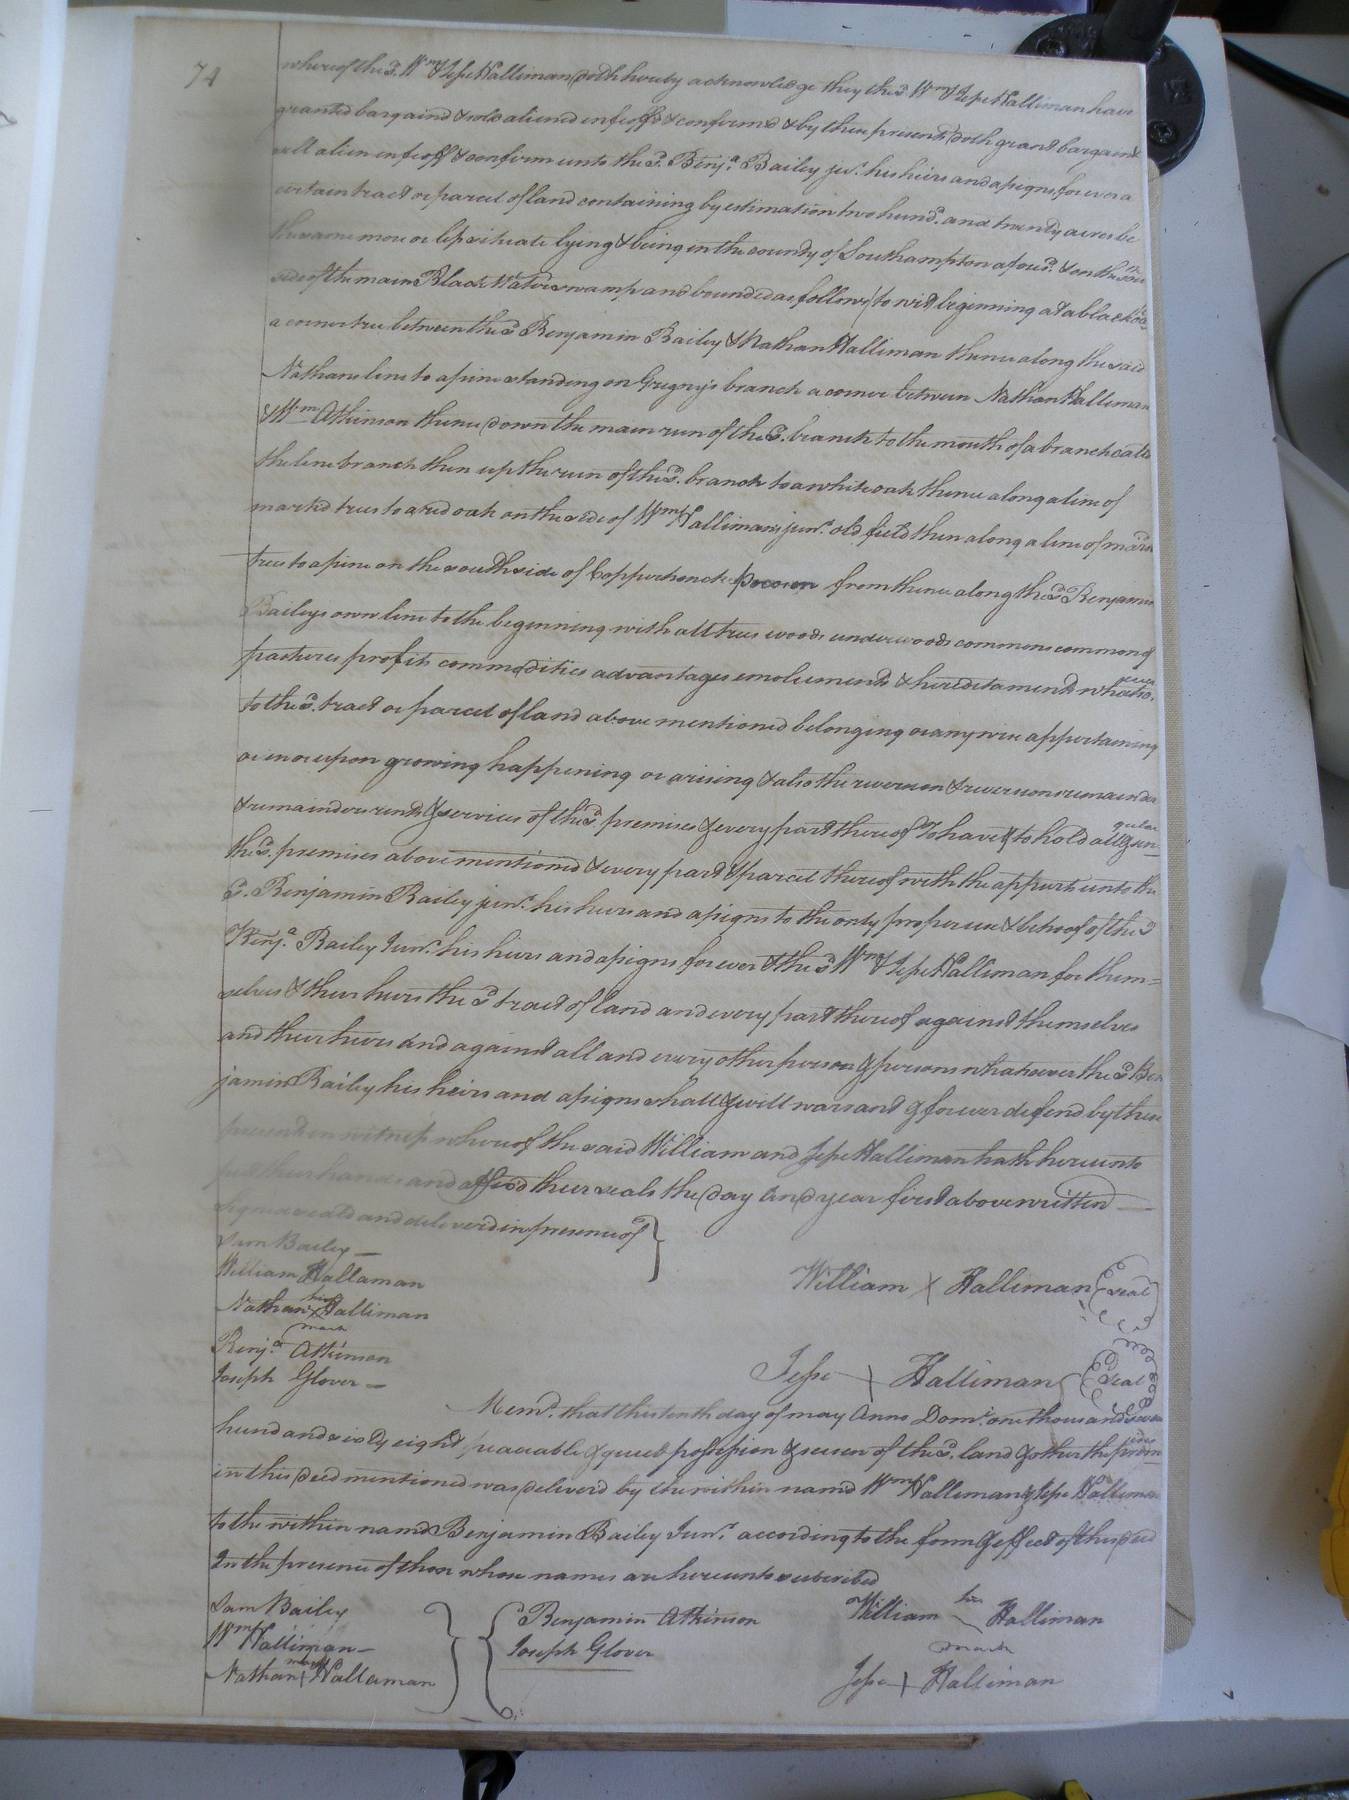 74
whereof the sd. Wm & Jesse Halliman doth hereby acknowledge they the sd. Wm & Jesse Halliman have
granted bargaind & sold aliened enfeoffd & confirmd & by these presents doth grant bargain &
sell alien enfeoff & confirm unto the sd. Benja. Bailey jur. his heirs and assigns for ever a
certain tract or parcel of land containing by estimation two hundd. and twenty acres be
the same more or less situate lying & being in the county of Southampton afoesd. & on the Sou
side of the main Black Water swamp and bounded as follows to wit beginning at a black oa
a corner tree between the sd Benjamin Bailey & Nathan Halliman thence along the said
Nathans line to a pine standing on branch a corner between Nathan Halliman
& Wm Atkinson thence down the main run of the sd. branch to the mouth of a branch calld
the line branch then up the run of the sd. branch to a white oak thence along a line of
markd trees to a red oak on the side of Wm Hallimans junr. old field then along a line of markd
trees to a pine on the south side of pocoson from thence along the sd Benjamin
Baileys own line to the beginning with all trees woods underwoods commons common of
pastures profits commodities advantages emoluments & hereditaments whatso=
ever
to the sd. tract or parcel of land above mentioned belonging or any wise appertaining
or in or upon growing happening or arising & also the reversion & reversion remainder
& remainders rents & services of the sd. premises & every part thereof To have & to hold all & sin=
gular
the sd. premises above mentioned & every part & parcel thereof with the appurts unto the
sd. Benjamin Bailey junr. his heirs and assigns to the only proper use & behoof of the sd
Benja. Bailey Junr. his heirs and assigns for ever & the sd Wm & Jesse Halliman for them=
selves & their heirs the sd tract of land and every part thereof against themselves
and their heirs and against all and every other person & persons whatsoever the sd Ben
jamin Bailey his heirs and assigns shall & will warrant & forever defend by these
presents in witness whereof the said William and Jesse Halliman hath hereunto
set their hands and affixd their seals the day and year first above written
Signed seald and deliverd in presence of
Sam Bailey
William Hallaman
William X Halliman (seal)
Nathan his X Halliman
mark
Benja. Atkinson
Joseph Glover
Jesse X Halliman (Seal)
Memd. that this tenth day of may Anno Domi. one thousand seven
hund and sixty eight peaceable & quiet possession & seisen of the sd. land & other the prem=
ises
in this deed mentioned was deliverd by the within namd Wm Halleman & Jesse Halliman
to the within namd Benjamin Bailey Junr. according to the form & effect of this deed
In the presence of those whose names are hereunto subscribed
Sam Bailey
Wm Halliman
Nathan X mark Hallaman
Benjamin Atkinson
Joseph Glover
William his Halliman
mark
Jesse X Halliman